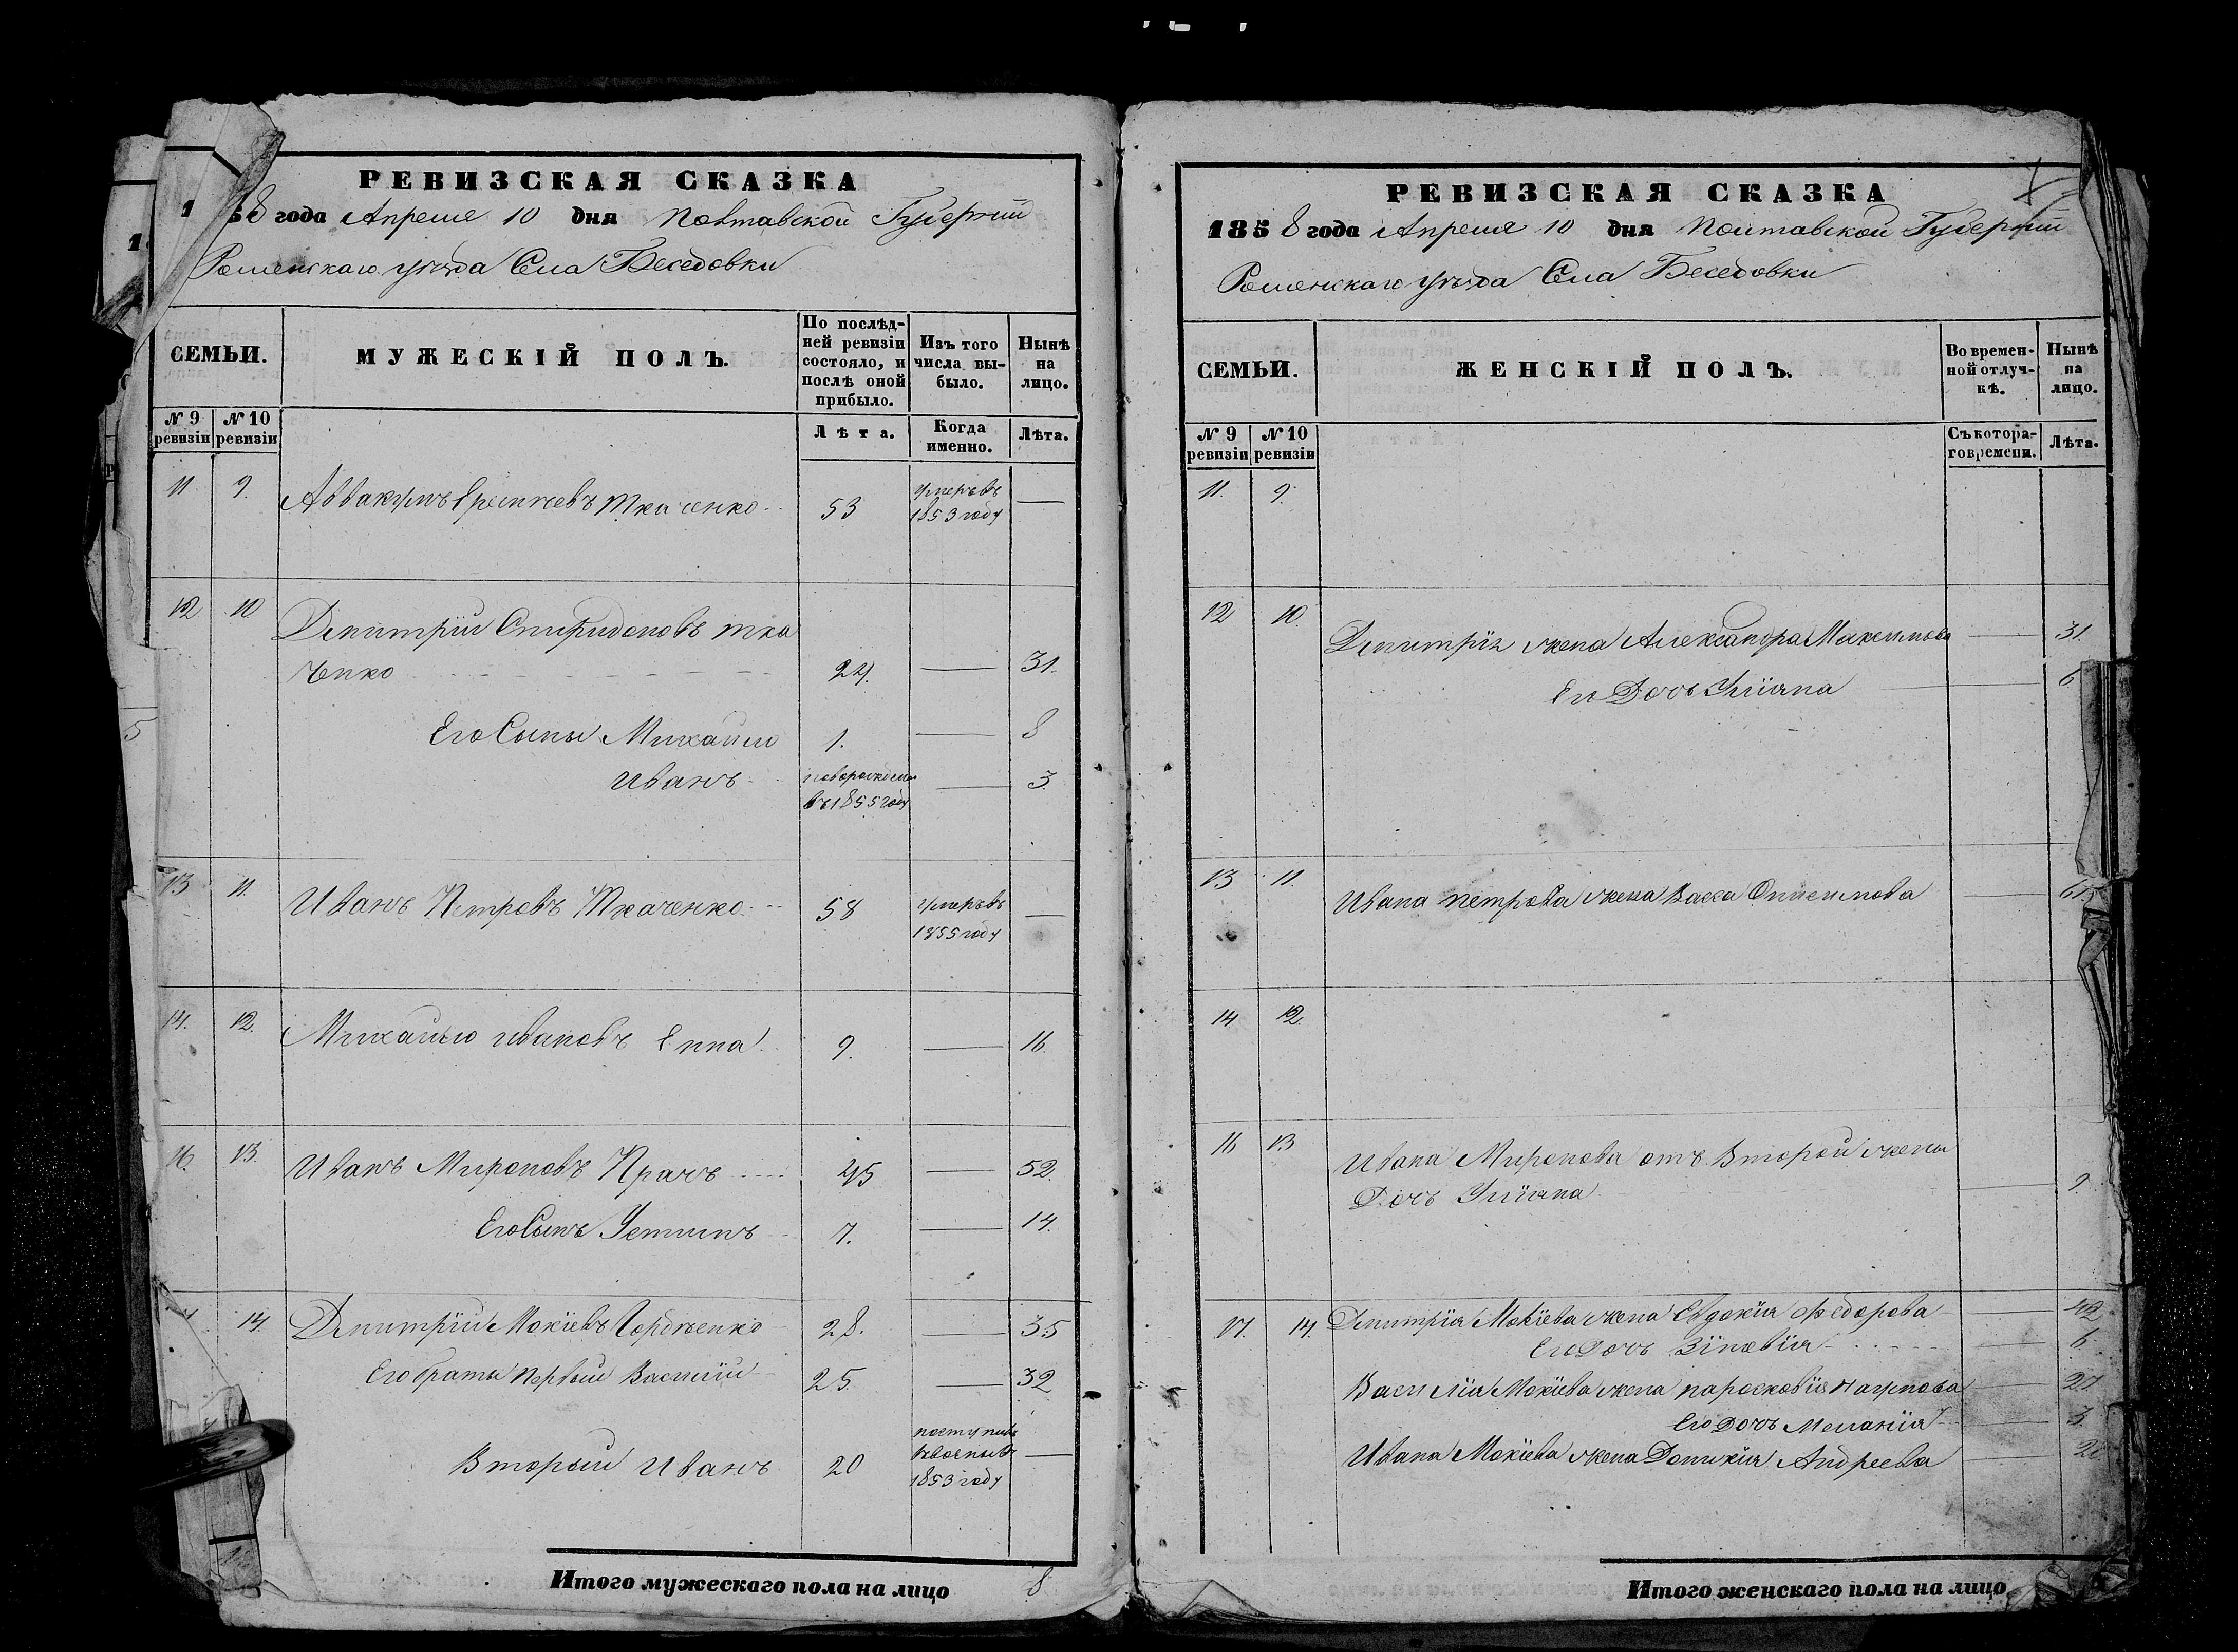 РЕВИЗСКАЯ СКАЗКА
1 58 года Апреля 10 дня Полтавской Губерніи
Роменскаго уѣзда Села Беседовки
СЕМЬИ.
МУЖЕСКІЙ ПОЛЪ.
По послѣд-
ней ревизіи
состояло, и
послѣ оной
прибыло.
Изъ того
числа вы-
было.
Нынѣ
на
лицо.
№ 9 ревизіи
№ 10 ревизіи
Лѣта.
Когда именно.
Лѣта.
11. 9. Аввакумъ Ткаченко 53 умеръ въ 1853 году —
12 10 Дмитрій Спиридоновъ Тка
ченко 24. — 31.
Его Сыны Михайло 1. — 8
Иванъ новорожденъ въ 1855 году — 3.
13 11. Иванъ Петровъ Ткаченко 58 умеръ въ 1855 году —
14. 12. Михайло Ивановъ Еппа 9. — 16.
16. 13. Иванъ Мироновъ Прачъ 45 — 52.
Его Сынъ Устинъ 7. — 14.
14. Дмитрій Мокіевъ Гордѣенко 28. — 35
Его братья первый Василій 25. — 32
Второй Иванъ 20 поступилъ 1853 году —
Итого мужескаго пола на лицо 8
РЕВИЗСКАЯ СКАЗКА
1858 года Апреля 10 дня Полтавской Губерніи
Роменскаго уѣзда Села Беседовки
СЕМЬИ.
ЖЕНСКІЙ ПОЛЪ.
Во времен-
ной отлуч-
кѣ.
Нынѣ
на
лицо.
№ 9 ревизіи
№ 10 ревизіи
Съ котора-
го времени.
Лѣта.
11. 9.
12 10. Дмитрія жена Александра Максимова — 31.
Ея Дочь Уліяна — 6
13 11. Ивана Петрова жена Васса Онисимова — 61
14 12.
16 13 Ивана Миронова отъ Второй жены
Дочь Уліяна — 9.
17. 14. Дмитрія Мокіева жена Евдокія Федорова — 42
Его Дочь Зіновія — 6
Василія Мокіева жена Парасковія Наумова — 27
Его Дочь Меланія — 3
Ивана Мокіева жена Домикія Андреева —
Итого женскаго пола на лицо